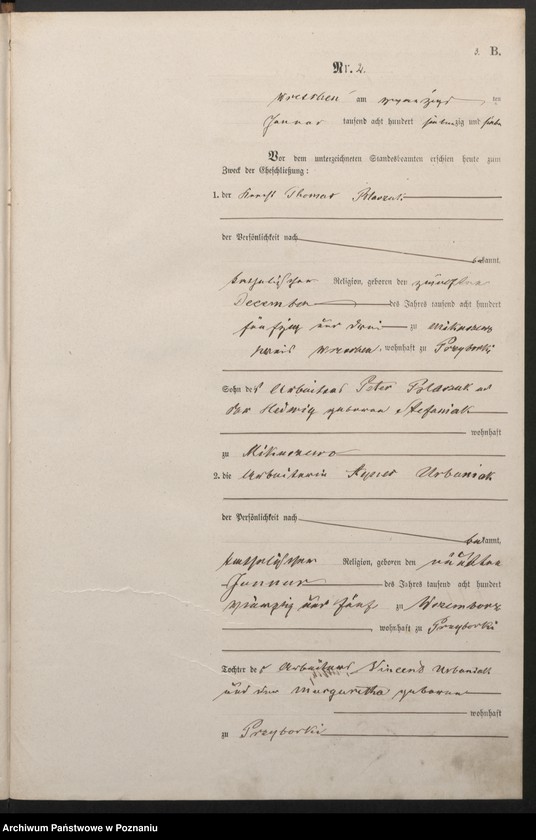 B.
Nr. 2.
Wreschen am zwanzigsten
Januar tausend acht hundert siebenzig und
Vor dem unterzeichneten Standesbeamten erschien heute zum
Zweck der Eheschließung:
1. der Knecht Thomas
der Persönlichkeit nach
bekannt,
katholischer Religion, geboren den
December des Jahres tausend acht hundert
fünfzig und drei zu
Kreis Wreschen, wohnhaft zu Przyborki
Sohn des Arbeiters Peter
der Hedwig geborene Stefaniak
wohnhaft
zu
2. die Arbeiterin Agnes Urbaniak
der Persönlichkeit nach
bekannt,
katholischer Religion, geboren den
Januar des Jahres tausend acht hundert
vierzig und fünf zu
wohnhaft zu Przyborki
Tochter des Arbeiters Vincend Urbaniak
und der Margaretha geborene
wohnhaft
zu Przyborki
Archiwum Państwowe w Poznaniu